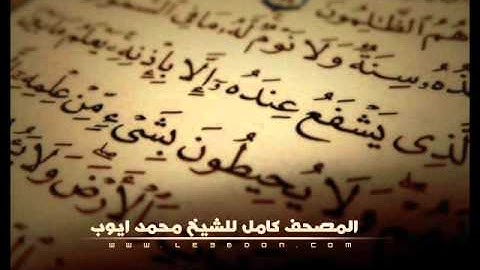 هُمُ ٱلظَّٰلِمُونَ
سِنَةٌ وَلَا نَوْمٌ لَّهُۥ مَا فِى
ٱلَّذِى يَشْفَعُ عِندَهُۥٓ إِلَّا بِإِذْنِهِۦ يَعْلَمُ مَا
وَلَا يُحِيطُونَ بِشَىْءٍ مِّنْ عِلْمِهِۦٓ
ٱلْأَرْضَ وَلَا
المصحف كامل للشيخ محمد ايوب